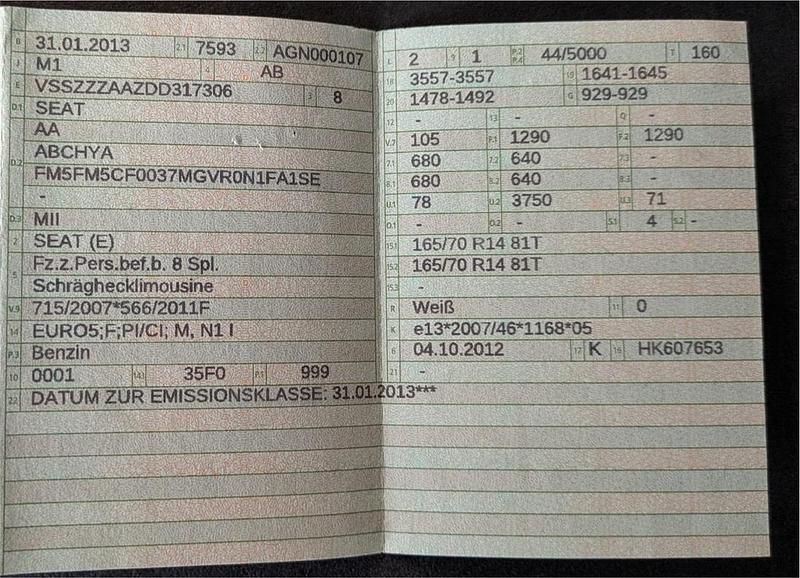 B 31.01.2013 2.1 7593 2.2 AGN000107
J M1 4 AB
E VSSZZZAAZDD317306 3 8
D.1 SEAT
AA
D.2 ABCHYA
FM5FM5CF0037MGVR0N1FA1SE
-
D.3 MII
2 SEAT (E)
5 Fz.z.Pers.bef.b. 8 Spl.
Schräghecklimousine
V.9 715/2007*566/2011F
14 EURO5;F;PI/CI; M, N1 I
P.3 Benzin
10 0001 14.1 35F0 P.1 999
22 DATUM ZUR EMISSIONSKLASSE: 31.01.2013***
L 2 9 1 P.2 P.4 44/5000 T 160
18 3557-3557 19 1641-1645
20 1478-1492 G 929-929
12 - 13 - Q -
V.7 105 F.1 1290 F.2 1290
7.1 680 7.2 640 7.3 -
8.1 680 8.2 640 8.3 -
U.1 78 U.2 3750 U.3 71
O.1 - O.2 - S.1 4 S.2 -
15.1 165/70 R14 81T
15.2 165/70 R14 81T
15.3 -
R Weiß 11 0
K e13*2007/46*1168*05
6 04.10.2012 17 K 16 HK607653
21 -